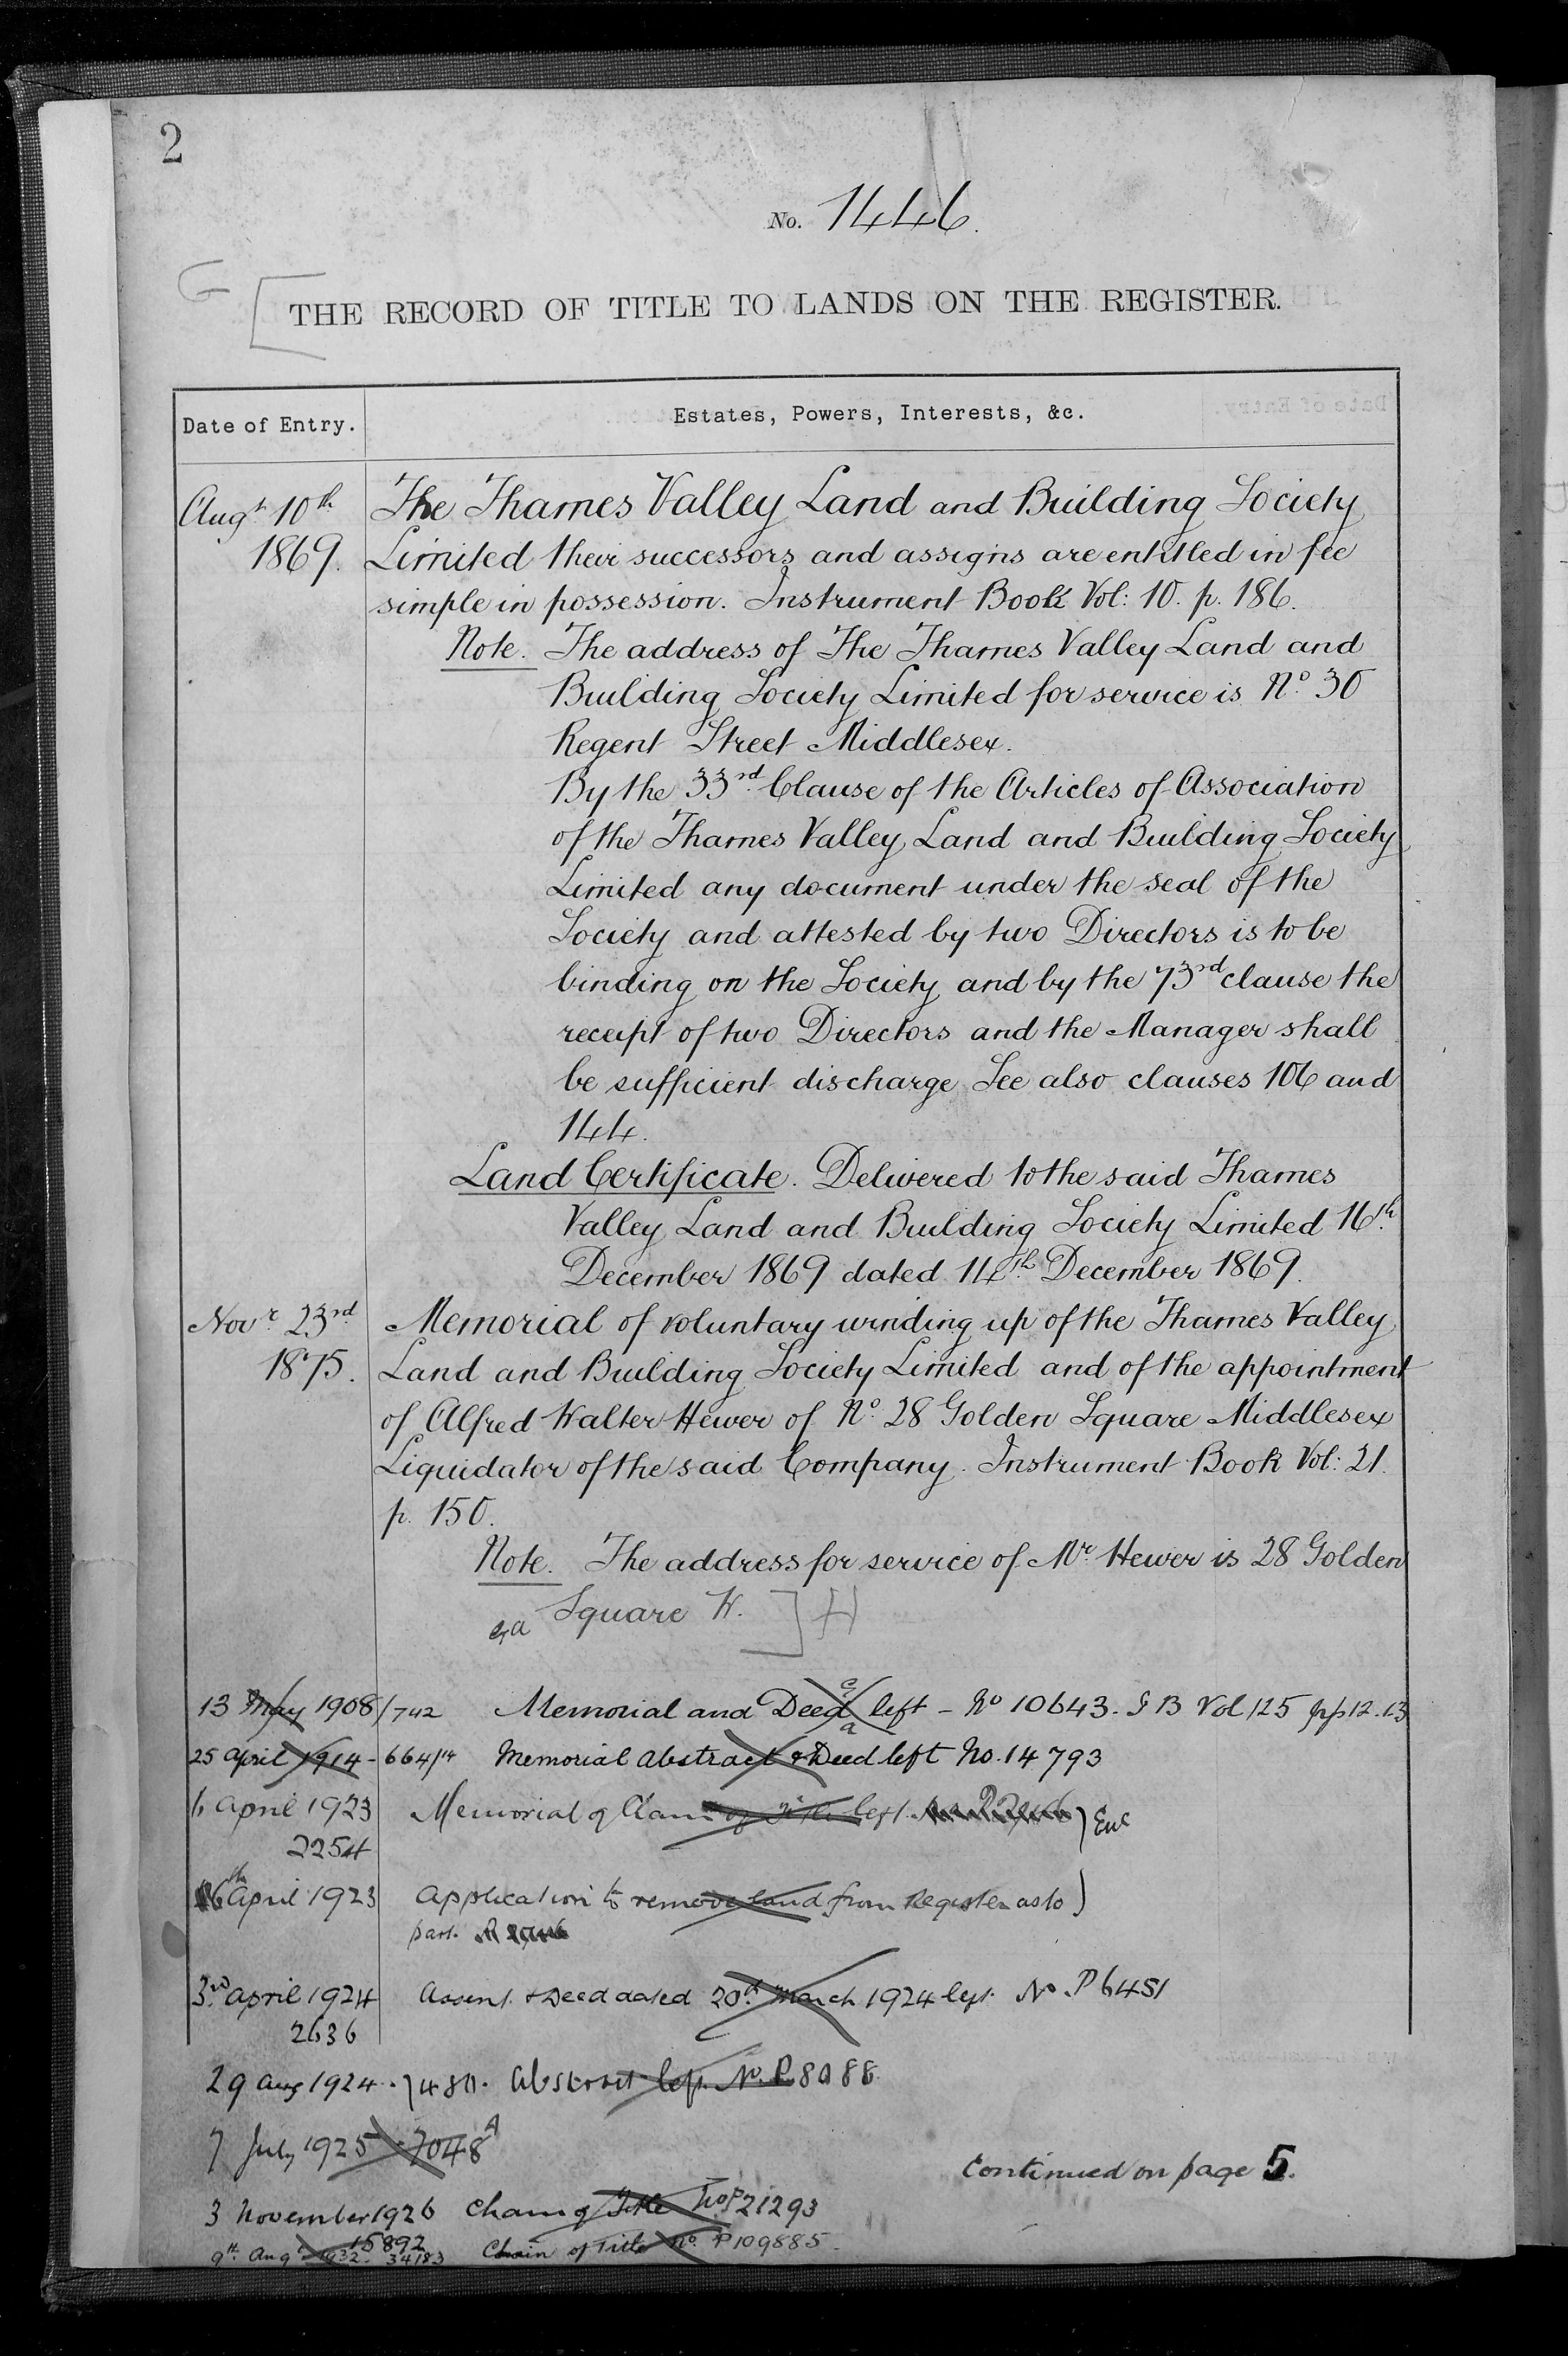 2
No. 1446.
G
THE RECORD OF TITLE TO LANDS ON THE REGISTER.
Date of Entry. Estates, Powers, Interests, &c.
Augt 10th The Thames Valley Land and Building Society
1869. Limited their successors and assigns are entitled in fee
simple in possession. Instrument Book Vol: 10. p. 186.
Note. The address of The Thames Valley Land and
Building Society Limited for service is No 30
Regent Street Middlesex.
By the 33rd Clause of the Articles of Association
of the Thames Valley Land and Building Society
Limited any document under the seal of the
Society and attested by two Directors is to be
binding on the Society and by the 73rd clause the
receipt of two Directors and the Manager shall
be sufficient discharge See also clauses 106 and
144.
Land Certificate. Delivered to the said Thames
Valley Land and Building Society Limited 16th
December 1869 dated 14th December 1869.
Novr 23rd Memorial of voluntary winding up of the Thames Valley
1875. Land and Building Society Limited and of the appointment
of Alfred Walter Hewer of No 28 Golden Square Middlesex
Liquidator of the said Company. Instrument Book Vol: 21.
p. 150.
Note. The address for service of Mr Hewer is 28 Golden
Square W. ] H
13 May 1908/742 Memorial and Deed left - No 10643. I B Vol 125 pp 12.13
25 April 1914 - 664/14 Memorial Abstract & Deed left No. 14793
6 April 1923 Memorial of Claim of Title left
2254
April 1923 Application to remove land from Register as to
part.
3rd April 1924 Assent & Deed dated 20th March 1924 left. No. P6451
2636
29 Aug 1924. Abstract left. No. P8088
7 July 1925 7048A
Continued on page 5.
3 November 1926 Chain of Title No P21293
15892
9th Augt 1932. 34183 Chain of Title No. P109885.